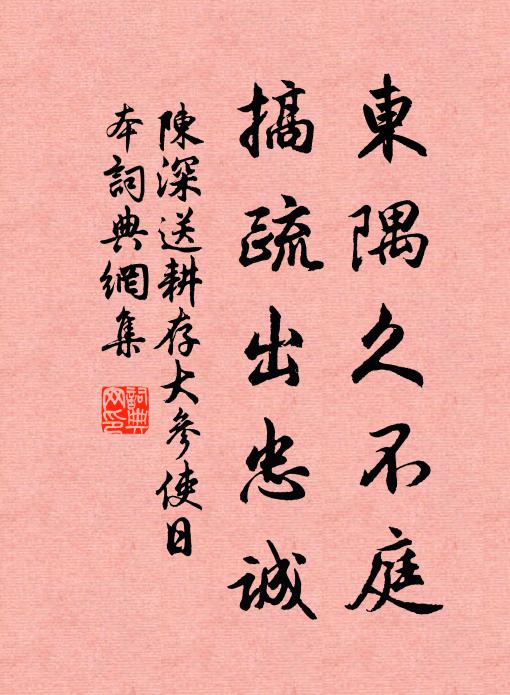 東隅久不庭
摛疏出忠誠
陳深送耕存大參使日
本詞典網集
詞典
网印